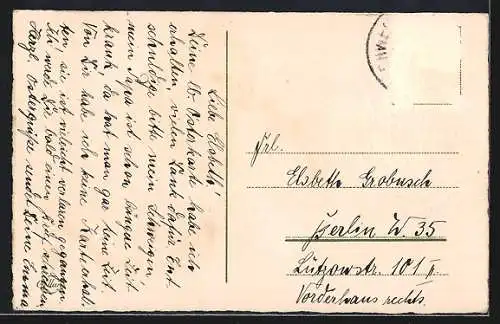 Liebe Elsbeth!
Deine lb. Osterkarte habe ich
erhalten, vielen Dank dafür. Ent-
schuldige bitte mein Schweigen,
mein Papa ist schon längere Zeit
krank, da hat man gar keine Lust.
Von Dir habe ich keine Karte erhal-
ten, sie ist vieleicht verloren gegangen
Ich werde Dir bald einen Brief schreiben,
Herzl. Ostergrüße sendet Deine Emma
Frl.
Elsbeth Grobusch
Berlin W. 35
Lützowstr. 101 II.
Vorderhaus rechts.